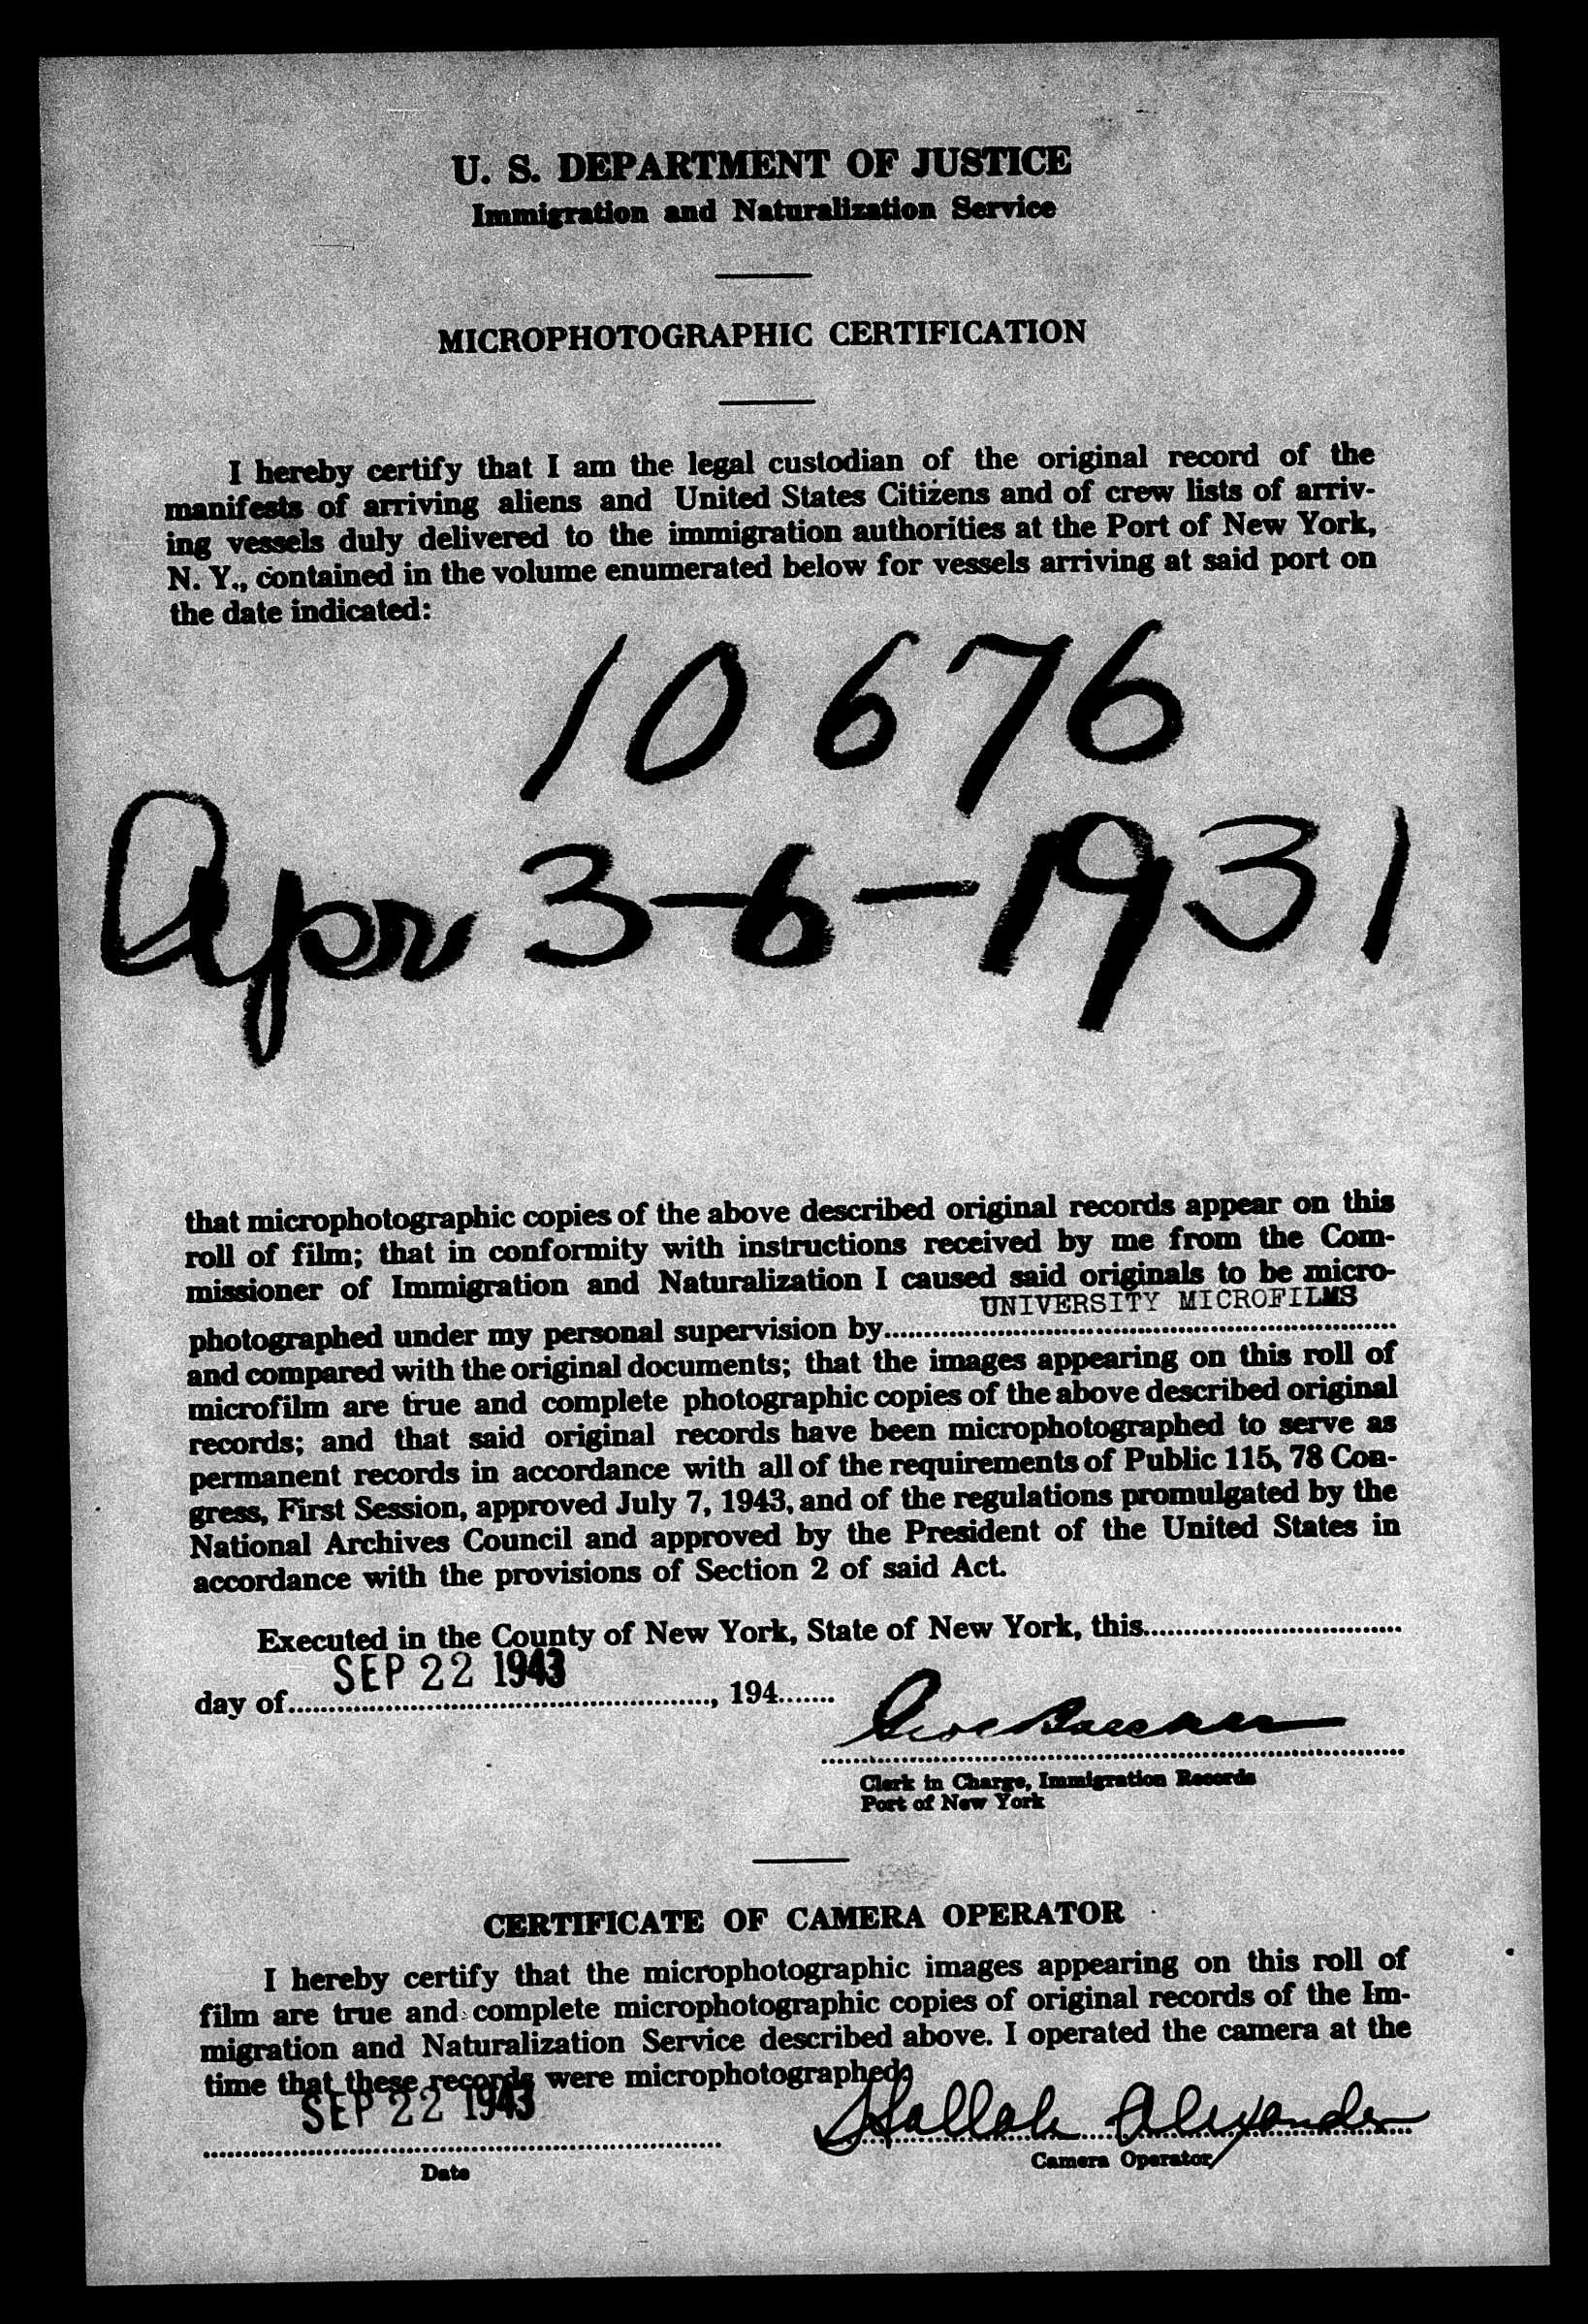 U. S. DEPARTMENT OF JUSTICE
Immigration and Naturalization Service
MICROPHOTOGRAPHIC CERTIFICATION
I hereby certify that I am the legal custodian of the original record of the
manifests of arriving aliens and United States Citizens and of crew lists of arriv-
ing vessels duly delivered to the immigration authorities at the Port of New York,
N. Y., contained in the volume enumerated below for vessels arriving at said port on
the date indicated:
10676
Apr 3-6-1931
that microphotographic copies of the above described original records appear on this
roll of film; that in conformity with instructions received by me from the Com-
missioner of Immigration and Naturalization I caused said originals to be micro-
UNIVERSITY MICROFILMS
photographed under my personal supervision by
and compared with the original documents; that the images appearing on this roll of
microfilm are true and complete photographic copies of the above described original
records; and that said original records have been microphotographed to serve as
permanent records in accordance with all of the requirements of Public 115, 78 Con-
gress, First Session, approved July 7, 1943, and of the regulations promulgated by the
National Archives Council and approved by the President of the United States in
accordance with the provisions of Section 2 of said Act.
Executed in the County of New York, State of New York, this
SEP 22 1943
day of, 194
Clerk in Charge, Immigration Records
Port of New York
CERTIFICATE OF CAMERA OPERATOR
I hereby certify that the microphotographic images appearing on this roll of
film are true and complete microphotographic copies of original records of the Im-
migration and Naturalization Service described above. I operated the camera at the
time that these records were microphotographed.
SEP 22 1943
Alexander
Date
Camera Operator